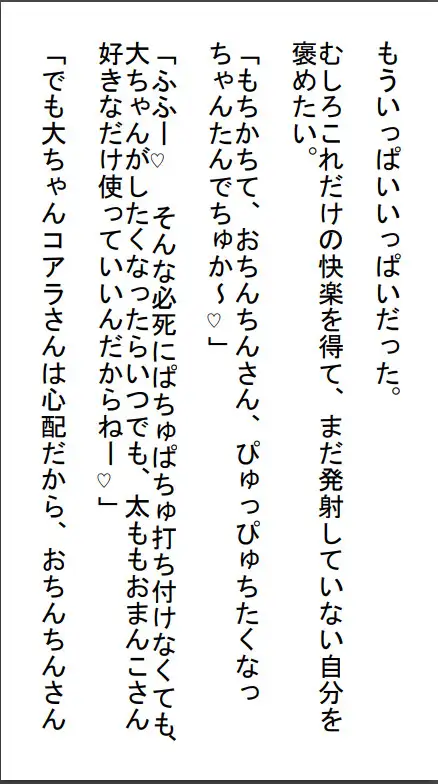 もういっぱいいっぱいだった。
むしろこれだけの快楽を得て、まだ発射していない自分を
褒めたい。
「もちかちて、おちんちんさん、ぴゅっぴゅちたくなっ
ちゃんたんでちゅか～♡」
「ふふー♡　そんな必死にぱちゅぱちゅ打ち付けなくても、
大ちゃんがしたくなったらいつでも、太ももおまんこさん
好きなだけ使っていいんだからねー♡」
「でも大ちゃんコアラさんは心配だから、おちんちんさん